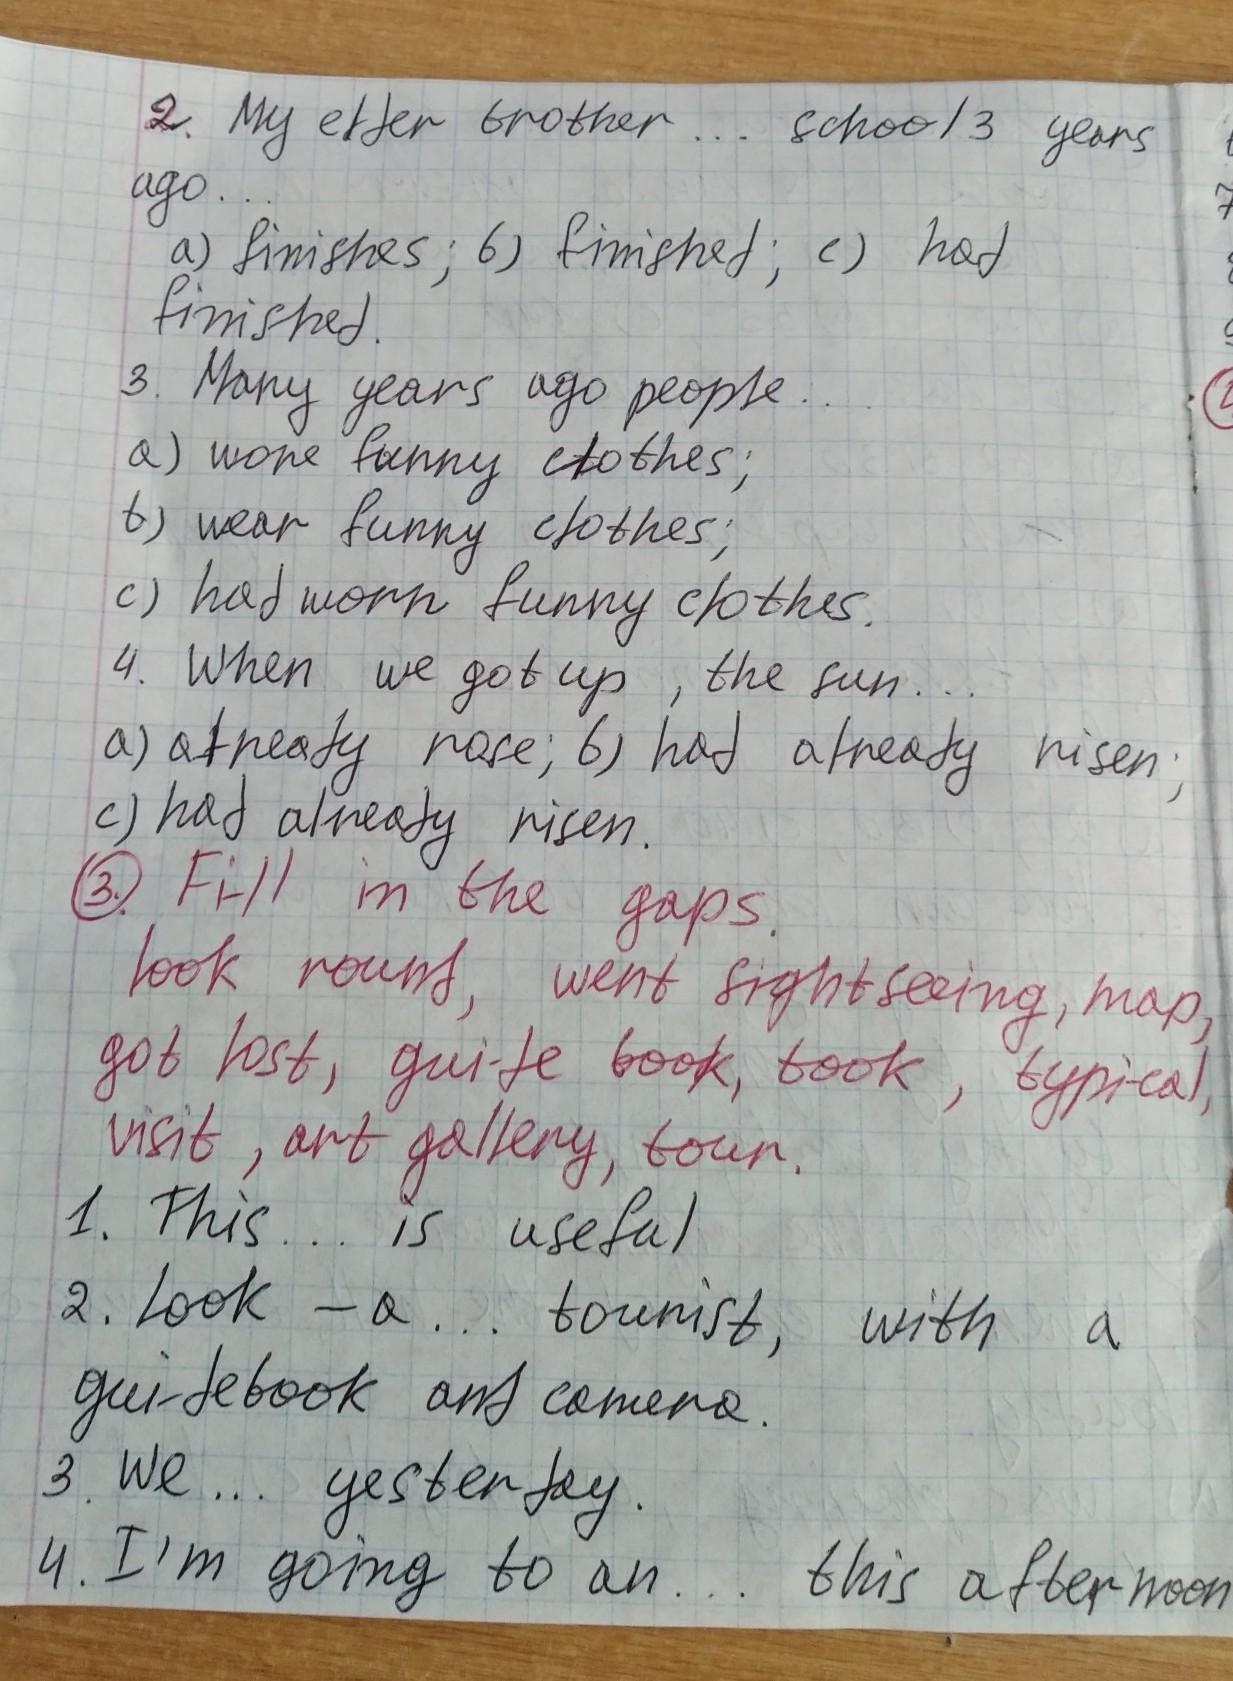 2. My elder brother ... school 3 years
ago...
a) finishes; б) finished; c) had
finished.
3. Many years ago people...
a) wore funny clothes;
b) wear funny clothes;
c) had worn funny clothes.
4. When we got up, the sun...
a) already rose; б) had already risen;
c) had already risen.
3. Fill in the gaps.
look round, went sightseeing, map,
got lost, guide book, took, typical,
visit, art gallery, tour.
1. This... is useful
2. Look – a... tourist, with a
guidebook and camera.
3. We... yesterday.
4. I'm going to an... this afternoon
7